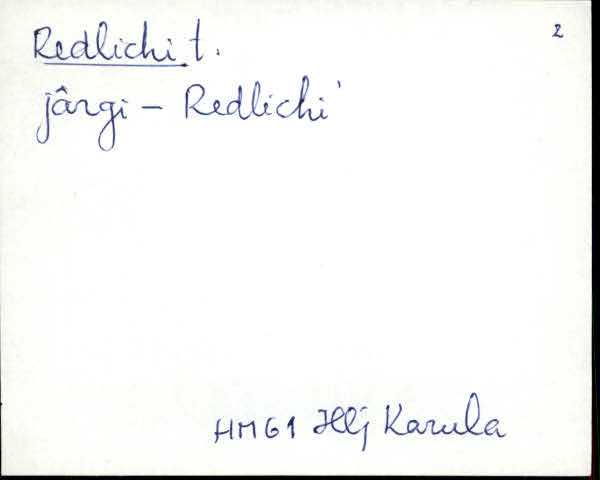 Redlichi t. 2
jârgi - Redlichi'
HM61 Hlj Karula